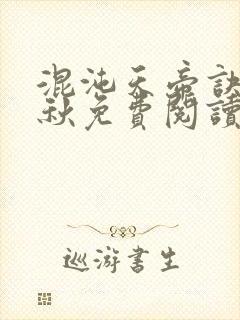 混沌天帝訣
秋免費閱讀
巡游書生